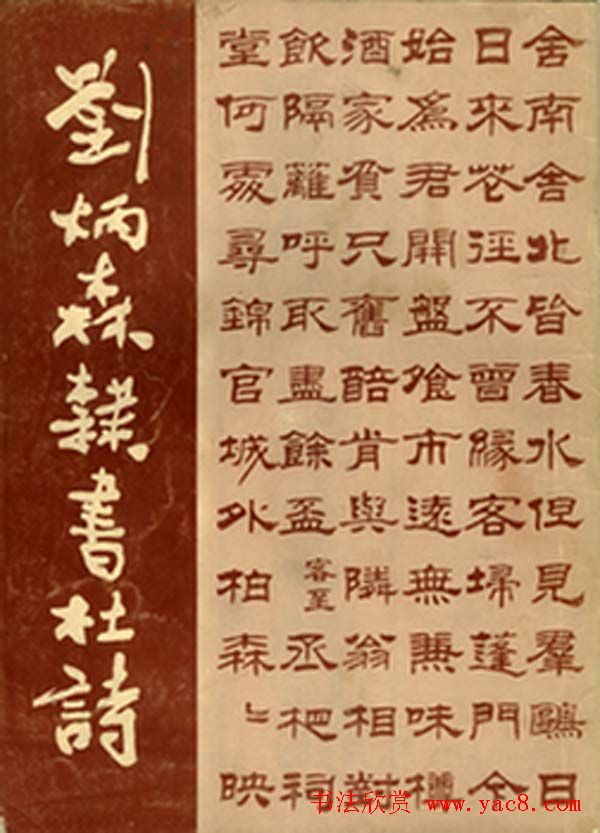 劉炳森隸書杜詩
舍南舍北皆春水但見羣鷗日
日來花徑不曾緣客埽蓬門今
始爲君開盤飧市遠無兼味樽
酒家貧只舊醅肯與隣翁相對
飲隔籬呼取盡餘盃 客至 丞相祠
堂何處尋錦官城外柏森〻映
书法欣赏 www.yac8.com